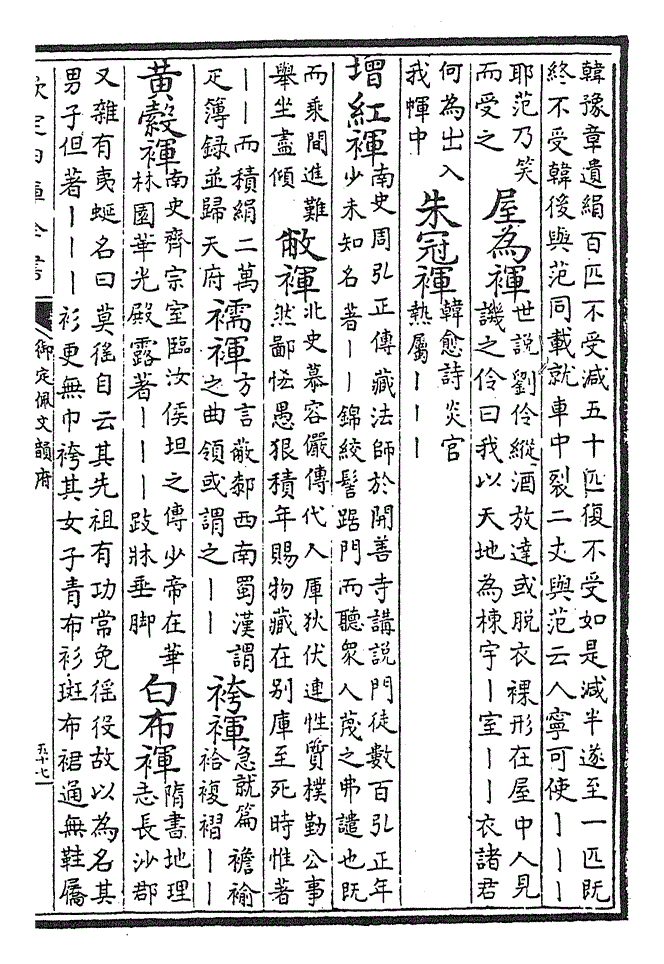 韓豫章遺絹百匹不受減五十匹復不受如是減半遂至一匹既
終不受韓後與范同載就車中裂二丈與范云人寧可使｜｜｜
耶范乃笑
而受之
屋為褌
世說劉伶縱酒放達或脫衣裸形在屋中人見
譏之伶曰我以天地為棟宇｜室｜｜衣諸君
何為出入
我㡓中
朱冠褌
韓愈詩炎官
熱屬｜｜｜
增紅褌
南史周弘正傳藏法師於開善寺講說門徒數百弘正年
少未知名著｜｜錦絞髻踞門而聽眾人蔑之弗譴也既
而乘間進難
舉坐盡傾
敝褌
北史慕容儼傳代人厙狄伏連性質樸勤公事
然鄙恡愚狠積年賜物藏在別庫至死時惟著
｜｜而積絹二萬
疋簿錄並歸天府
襦褌
方言蔽厀西南蜀漢謂
之曲領或謂之｜｜
袴褌
急就篇襜褕
袷複褶｜｜
黃縠褌
南史齊宗室臨汝侯坦之傳少帝在華
林園華光殿露著｜｜｜跂牀垂脚
白布褌
隋書地理
志長沙郡
又雜有夷蜒名曰莫徭自云其先祖有功常免徭役故以為名其
男子但著｜｜｜衫更無巾袴其女子青布衫斑布裙通無鞋屩
欽定四庫全書
御定佩文韻府
五十七